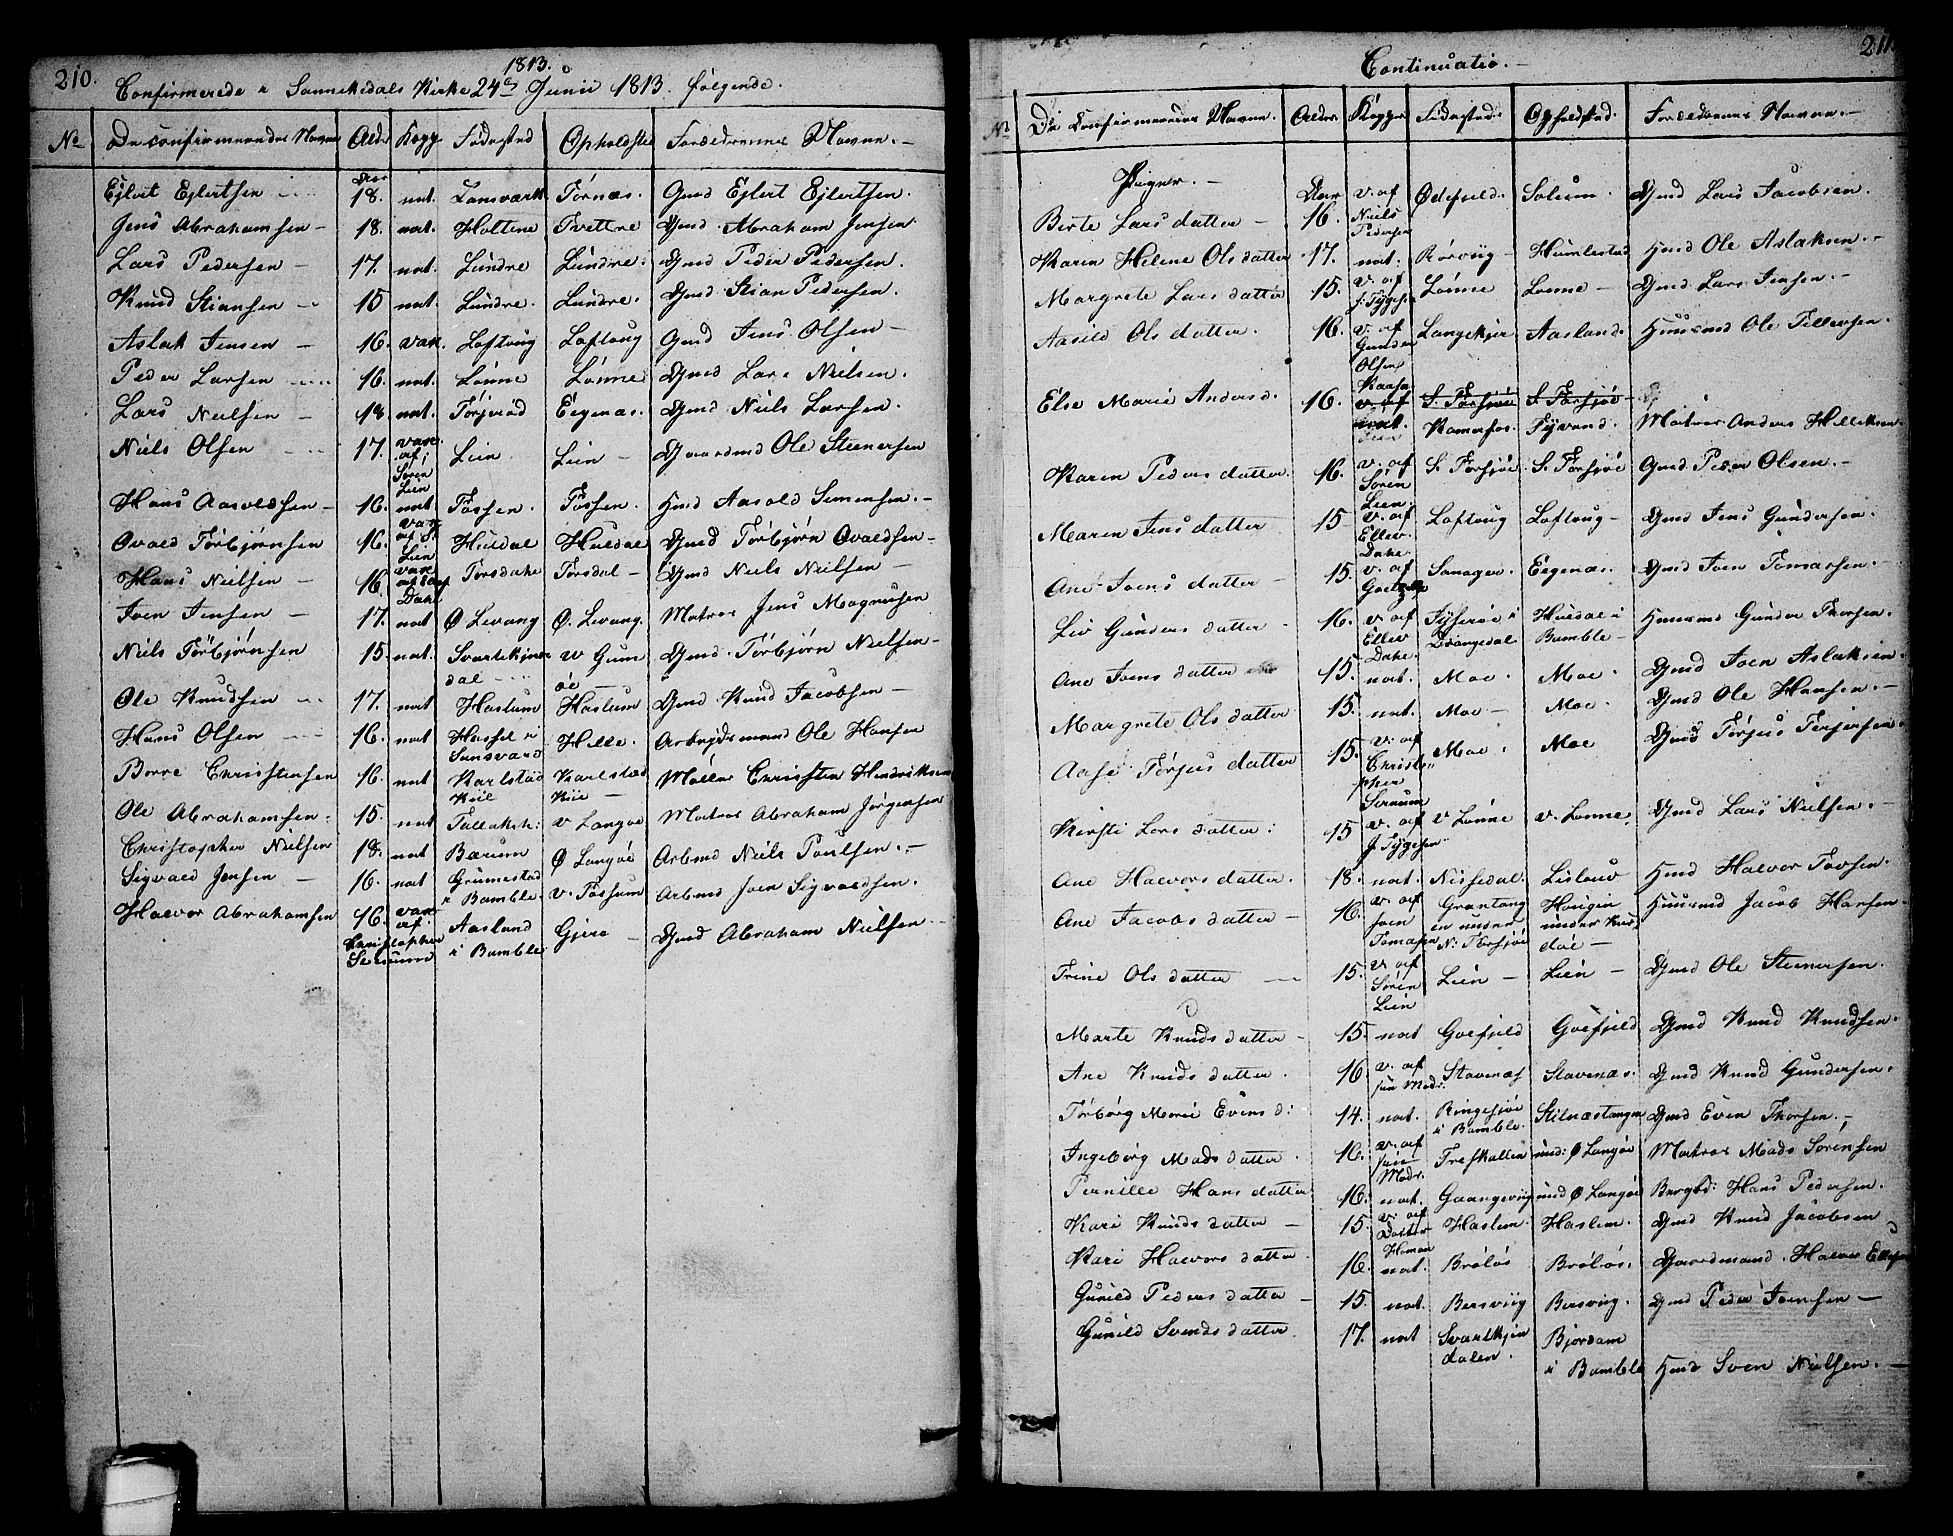 210.
1813.
Confirmerede i Sannikedals Kirke 24de Junii 1813 følgende.
No De confirmerendes Navne Alder Kopp Fødested Opholdsted Forældrenes Navne.-
Ejlert Ejlertsen Aar 18. nat. Tørnæs. Gmd Ejlert Ejlertsen.
Jens Abrahamsen - 18. nat. Holtene Tvettre Gmd Abraham Jensen
Lars Pedersen - 17. nat. Lundre Lundre. Gmd Peder Pedersen.
Knud Stiansen - 15 nat. Lundre. Lundre. Gmd Stian Pedersen.
Aslak Jensen - 16. vax. Loftoug Loftoug Gmd Jens Olsen -
Peder Larsen 16. nat. Lønne Lønne Gmd Lars Nielsen.
Lars Nielsen - 18 nat. Tørjerød Eegenæs. Gmd Niels Larsen.
Niels Olsen 17. vax. af Søren Lien Lien Lien - Gaardmd Ole Steenersen
Hans Aasoldsen - 16. nat Fossen. Fossen. Hmd Aasold Simensen. -
Ovald Torbjørnsen 16. vax af S. Lien Husdal Husdal Gmd Torbjørn Ovaldsen -
Hans Nielsen - 16. vax Dahl Torsdale Torsdal - Gmd Niels Nielsen -
Joen Jensen - 17. nat Ø Levang Ø. Levang. Matros Jens Magnusen
Niels Torbjørnsen 15. nat. Svartekjær dal v Gum øe Gmd. Torbjørn Nielsen -
Ole Knudsen 17. nat Haslum Haslum Gmd Knud Jacobsen -
Hans Olsen 16. nat Hassel i Hille. Arbejdsmand Ole Hansen
Børre Christensen 16. nat Karlstad Kiil Karlstad Møller Christen Hendriksen
Ole Abrahamsen. 15. nat Tallaksh: v Langøe Matros Abraham Jørgensen
Christopher Nielsen 18. nat Bærum Ø Langøe Arbmd Niels Poulsen. -
Sigvald Jensen - 16. nat Grumestad i Bamble. v. Fossum Arbmd Joen Sigvaldsen.
Halvor Abrahamsen 16. vax af: Christopher Aasland i Bamble Gjere - Gmd Abraham Nielsen. -
211.
Continuatio. -
No De Confirmerendes Navne. Alder Kopper Fødested: Opholdsted. Forældrenes Navne. -
Piger. -
Berte Lars datter - Aar 16. v. af Niels Pedersen Ødefjeld. Solum Gmd Lars Jacobsen.
Karen Helene Ols datter 17. nat. Rørviig Humlestad Hmd Ole Aslaksen. -
Margrete Lars datter 15. v. af J. Tygesen Lønne Lønne - Gmd. Lars Jensen. -
Aasild Ols datter. 16. v. af Gunder Olsen Langekjær Aasland. Huusmd Ole Tellevsen.
Else Marie Andersd. 16. v. af nat. S. Forsjøe S. Forsjøe Kamerfos. Tyvand. Matros Anders Helleksen.
Karen Peders datter. 16. v. af Søren Lien. S. Forsjøe. S. Forsjøe Gmd. Peder Olsen. -
Maren Jens datter 15 v. af Ellev Dahl. Loftoug Loftoug - Gmd Jens Gundersen.
Ane Joens datter - 15. v. af Sanager. Eegenæs. Gmd Joen Tomassen.
Liv Gunders datter 16. v af Ellev Dahl. i Drangedal Husdal i Bamble - Huusmd Gunder Thorsen.
Ane Joens datter 15. nat. Moe. Moe. Gmd Joen Aslaksen
Margrete Ols datter 15. nat. Moe - Moe. Gmd Ole Hansen. -
Aase Torjus datter 15. v. af Christopher Moe. Moe Gmd Torjus Torjersen
Kirsti Lars datter. 15 v. af J. Tygesen v Lønne v. Lønne. Gmd Lars Nielsen.
Ane Halvors datter. 18. nat. Nissedal. Lislouv Hmd Halvor Tovsen.
Ane Jacobs datter - 16. v. af Joen Tomassen Grantang en under N. Forsjøe under Kus døe - Huusmd Jacob Hansen
Trine Ols datter 15. v. af Søren Lien Lien - Lien - Gmd Ole Steenersen.
Marte Knuds datter - 15. nat Goefjeld Goefjeld Gmd Knud Knudsen.
Ane Knuds datter. 16. v. af sin Modr. Stavenæs Stavenæs. Gmd Knud Gundersen.
Torborg Marie Evens d: 14. nat. Ringesjøe i Bamble. Stilnæstangen Gmd Even Thorsen.
Ingeborg Mads datter. 16. v. af sin Modr. Treskatten und: Ø Langøe Matros Mads Sørensen
Pernille Hans datter 16. nat. Gaangeviig und Ø Langøe Bergsd: Hans Pedersen.
Kari Knuds datter - 15. v. af Doctor Homan Haslem Haslem. Gmd Knud Jacobsen
Kari Halvors datter 16. nat. Brøløs Brøløs. Gaardmand. Halvor Ellefsen
Gunild Peders datter - 15. nat. Bersviig Bersviig. Gmd Peder Joensen -
Gunild Svends datter. 17. nat Svartkjær dalen. Bjørdam i Bamble Hmd Sven Nielsen. -